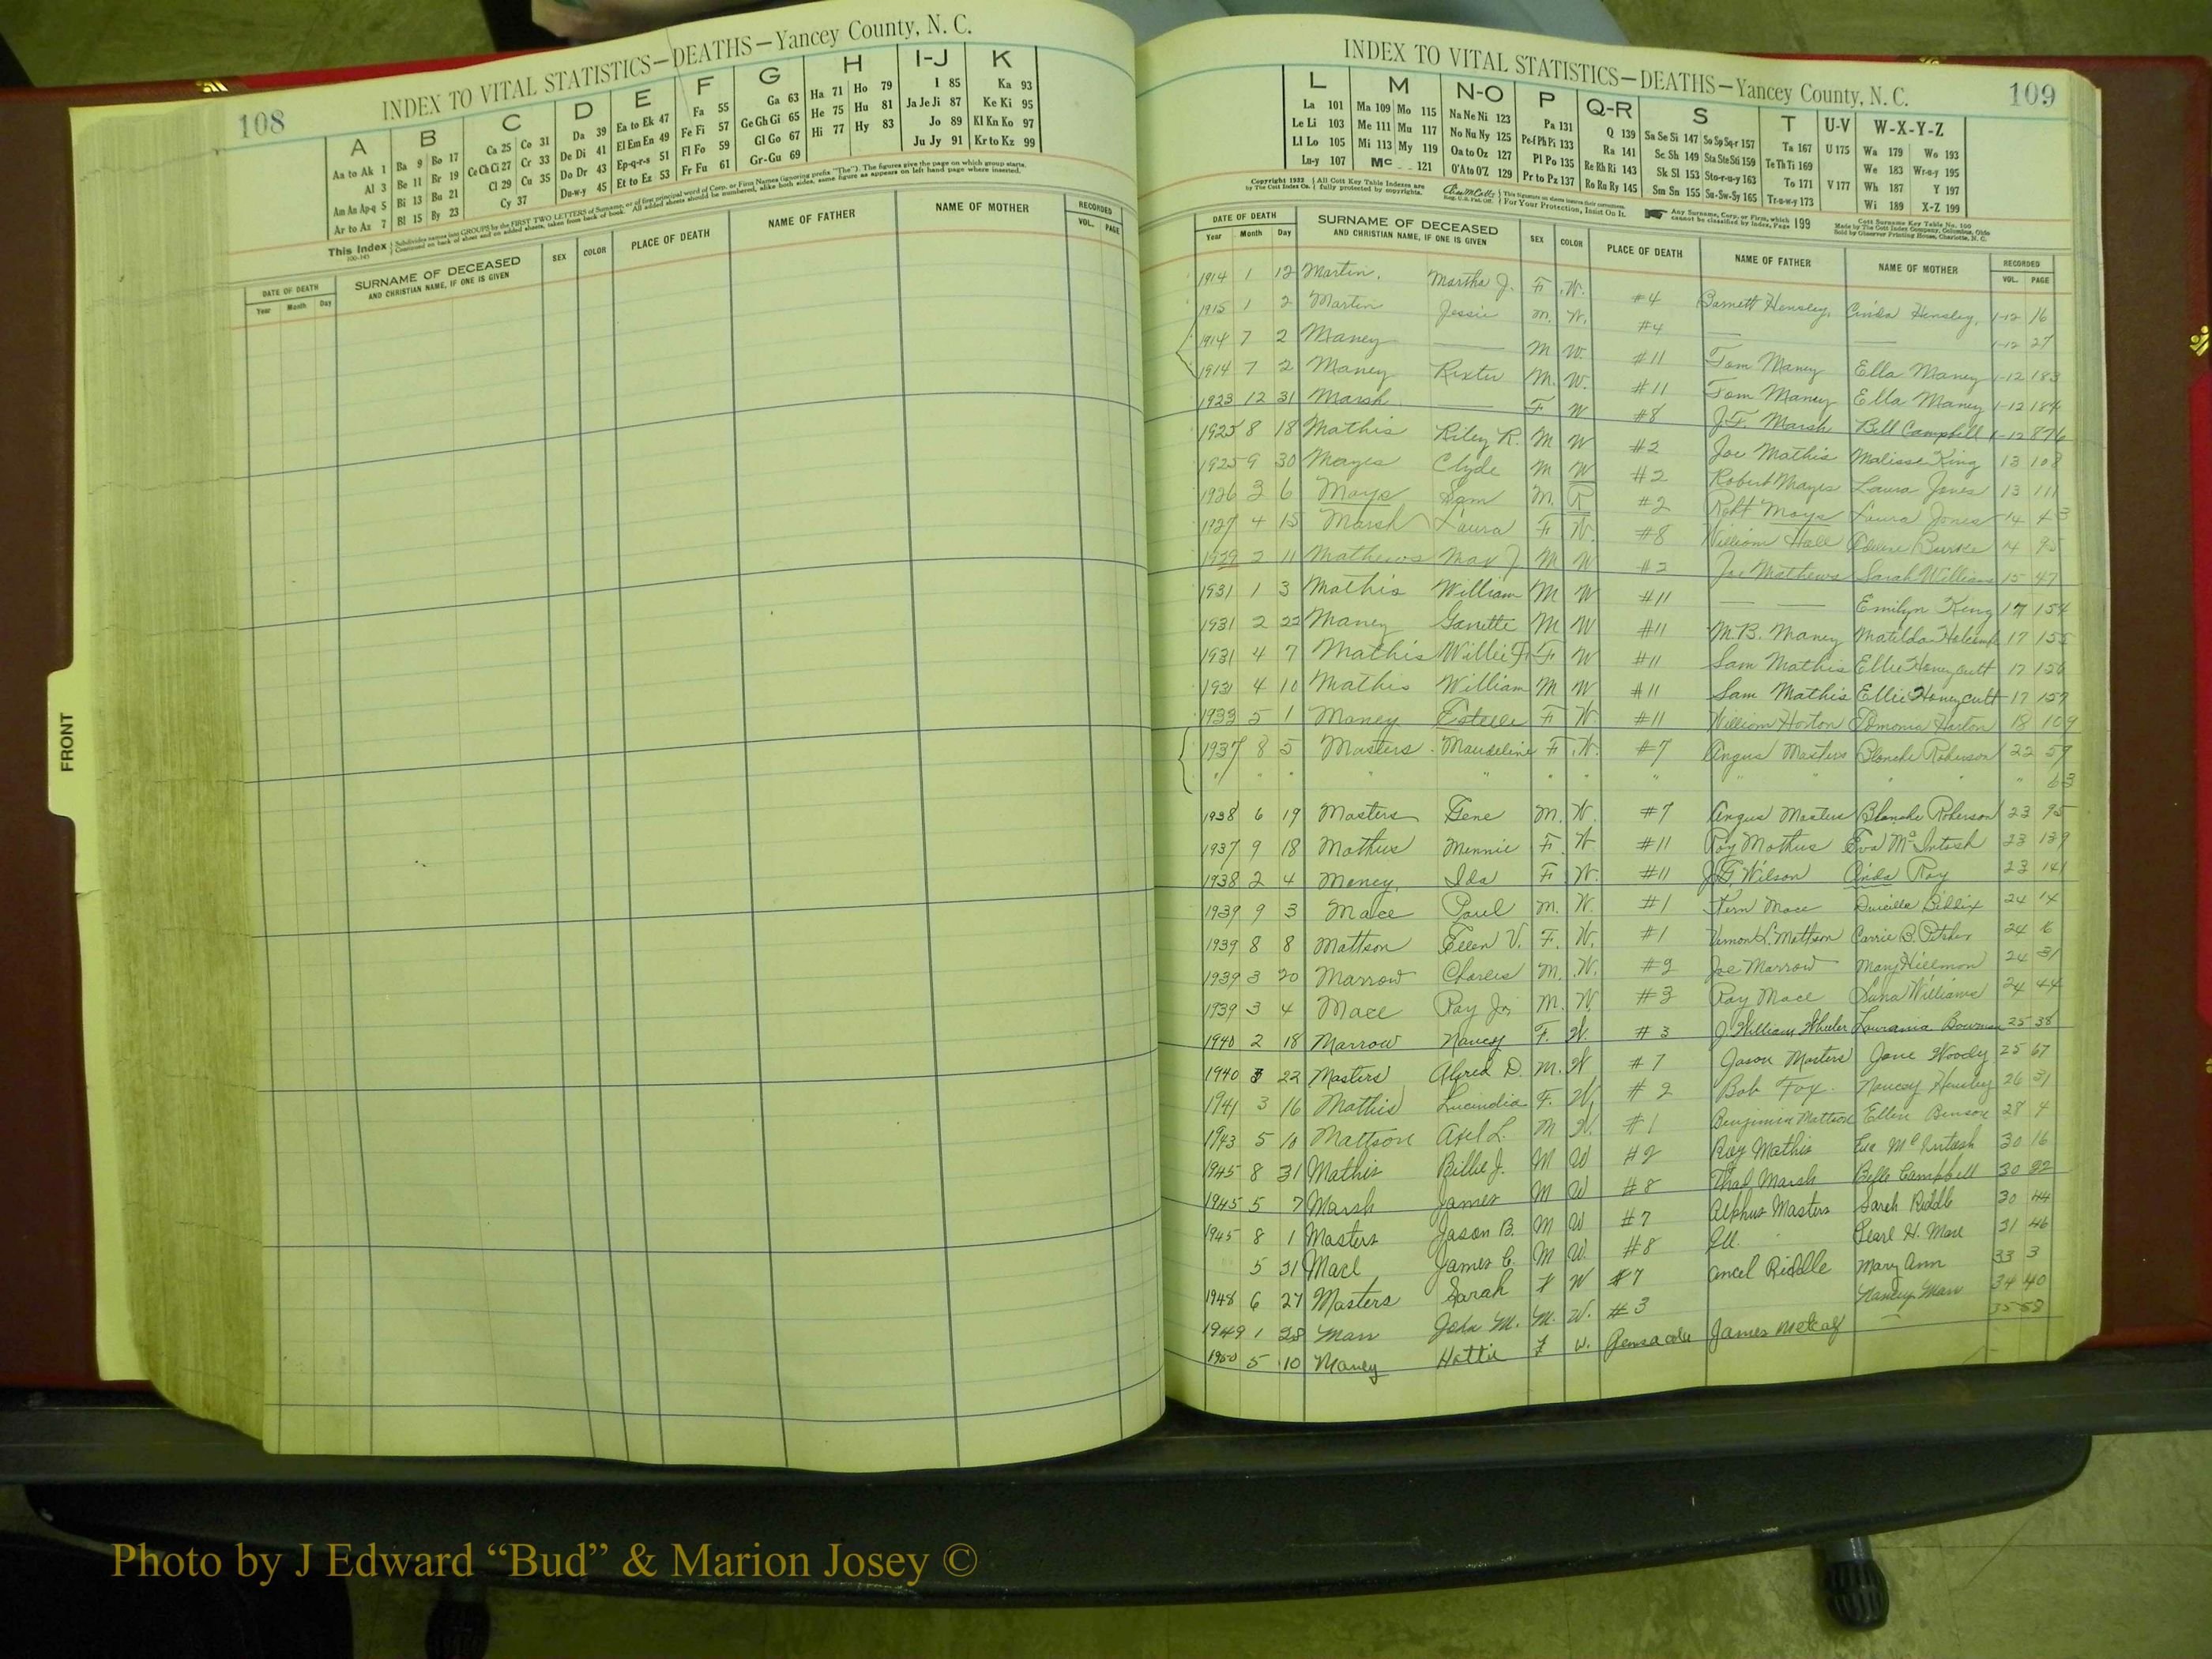 108
INDEX TO VITAL STATISTICS—DEATHS—Yancey County, N. C.
A B C D E F G H I-J K
Aa to Ak 1 Ba 9 Bo 17 Ca 25 Co 31 Da 39 Ea to Ek 47 Fa 55 Ga 63 Ha 71 Ho 79 I 85 Ka 93
Al 3 Be 11 Br 19 Ce Ch Ci 27 Cr 33 De Di 41 El Em En 49 Fe Fi 57 Ge Gh Gi 65 He 75 Hu 81 Ja Je Ji 87 Ke Ki 95
Am An Ap-q 5 Bi 13 Bu 21 Cl 29 Cu 35 Do Dr 43 Ep-q-r-s 51 Fl Fo 59 Gl Go 67 Hi 77 Hy 83 Jo 89 Kl Kn Ko 97
Ar to Az 7 Bl 15 By 23 Cy 37 Du-w-y 45 Et to Ez 53 Fr Fu 61 Gr-Gu 69 Ju Jy 91 Kr to Kz 99
This Index
DATE OF DEATH SURNAME OF DECEASED SEX COLOR PLACE OF DEATH NAME OF FATHER NAME OF MOTHER RECORDED
Year Month Day AND CHRISTIAN NAME, IF ONE IS GIVEN VOL. PAGE
FRONT
INDEX TO VITAL STATISTICS—DEATHS—Yancey County, N. C.
109
L M N-O P Q-R S T U-V W-X-Y-Z
La 101 Ma 109 Mo 115 Na Ne Ni 123 Pa 131 Q 139 Sa Se Si 147 So Sp Sq-r 157 Ta 167 U 175 Wa 179 Wo 193
Le Li 103 Me 111 Mu 117 No Nu Ny 125 Pe-f Ph Pi 133 Ra 141 Sc Sh 149 Sta Ste Sti 159 Te Th Ti 169 We 183 Wr-u-y 195
Ll Lo 105 Mi 113 My 119 Oa to Oz 127 Pl Po 135 Re Rh Ri 143 Sk Sl 153 Sto-r-u-y 163 To 171 V 177 Wh 187 Y 197
Lu-y 107 Mc 121 O'A to O'Z 129 Pr to Pz 137 Ro Ru Ry 145 Sm Sn 155 Su-Sw-Sy 165 Tr-u-w-y 173 Wi 189 X-Z 199
DATE OF DEATH SURNAME OF DECEASED SEX COLOR PLACE OF DEATH NAME OF FATHER NAME OF MOTHER RECORDED
Year Month Day AND CHRISTIAN NAME, IF ONE IS GIVEN VOL. PAGE
1914 1 12 Martin, Martha J. F. W. #4 Barnett Hensley, Cinda Hensley, 1-12 16
1915 1 2 Martin Jessie M. W. #4 — — 1-12 27
1914 7 2 Maney — M W. #11 Tom Maney Ella Maney 1-12 183
1914 7 2 Maney Rixter M. W. #11 Tom Maney Ella Maney 1-12 184
1923 12 31 Marsh — F W #8 J.F. Marsh Bell Campbell 1-12 876
1925 8 18 Mathis Riley R. M W #2 Joe Mathis Malissa King 13 108
1925 9 30 Mayes Clyde M W #2 Robert Mayes Laura Jones 13 111
1926 3 6 Mays Sam M. R #2 Robt Mays Laura Jones 14 43
1927 4 15 Marsh Laura F W. #8 William Hall Burke 4 95
1929 2 11 Mathews May J M W #2 Joe Mathews Sarah Williams 15 47
1931 1 3 Mathis William M W #11 — — Emilyn King 17 154
1931 2 22 Maney Garrette M W #11 M.B. Maney Matilda Holcomb 17 155
1931 4 7 Mathis Willie F. F W #11 Sam Mathis Ellie Honeycutt 17 156
1931 4 10 Mathis William M W #11 Sam Mathis Ellie Honeycutt 17 157
1933 5 1 Maney Estelle F W. #11 William Horton Edmonia Horton 18 109
1937 8 5 Masters Maudeline F. W. #7 Angus Masters Blanche Roberson 22 59
" " " " " " " " " " " 63
1938 6 19 Masters Gene M. W. #7 Angus Masters Blanche Roberson 23 95
1937 9 18 Mathus Minnie F. W #11 Roy Mathus Eva McIntosh 23 139
1938 2 4 Maney, Ida F. W. #11 J.G. Wilson Cinda Ray 23 141
1939 9 3 Mace Paul M. W. #1 Fern Mace Biddix 24 14
1939 8 8 Mattson Ellen V. F. W. #1 Vernon L. Mattson Carrie B. 24
1939 3 20 Marrow Charles M. W. #2 Joe Marrow Mary Hillmon 24 31
1939 3 4 Mace Ray Jr. M. W. #3 Ray Mace Williams 24 44
1940 2 18 Marrow Nancy F. W. #3 J. William Wheeler Laurania Bowman 25 38
1940 3 22 Masters Alfred D. M. W #7 Jason Masters Jane Woody 25 67
1941 3 16 Mathis Lucindia F. W. #2 Bob Fox. Nancy Hensley 26 31
1943 5 10 Mattson Axel L. M W. #1 Benjimin Mattson Ellen Benson 28 4
1945 8 31 Mathis Billie J. M W #2 Roy Mathis Eva McIntosh 30 16
1945 5 7 Marsh James M W #8 Thad Marsh Belle Campbell 30 22
1945 8 1 Masters Jason B. M W #7 Alphus Masters Sarah Riddle 30 44
5 31 Mace James C. M W. #8 Ell. " Pearl H. Mace 31 46
1948 6 27 Masters Sarah F W #7 Ancel Riddle Mary Ann 33 3
1949 1 28 Man John M. M. W. #3 Nancy Man 34 40
1950 5 10 Maney Hattie F W. Pensacola James Metcalf — 35 58
Photo by J Edward “Bud” & Marion Josey ©